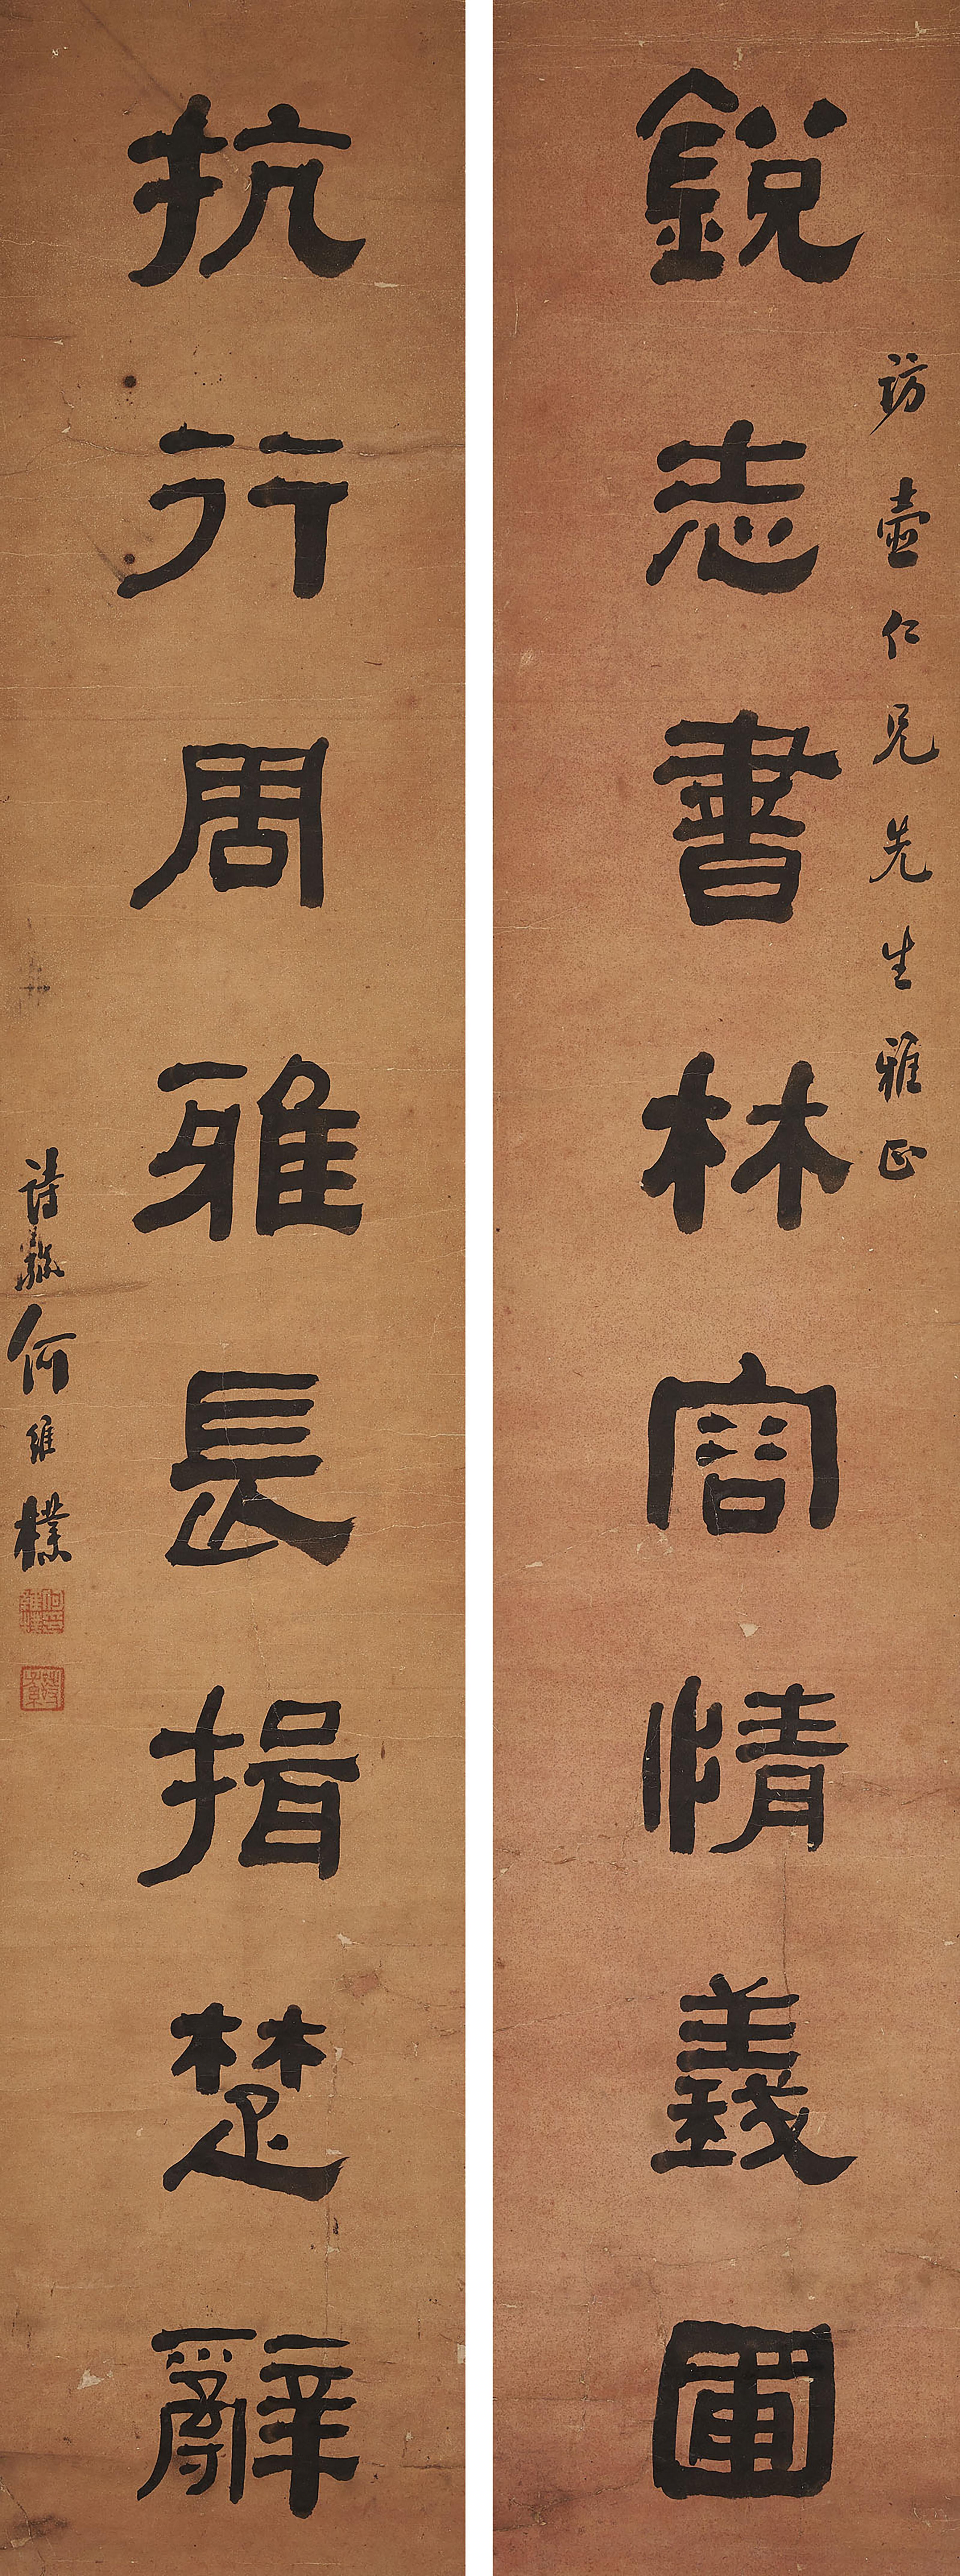 訪壺仁兄先生雅正
銳志書林容情義圃
抗行周雅長揖楚辭
詩孫何維樸
何印維樸